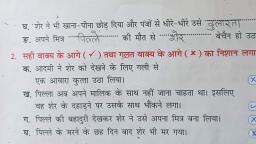 घ. शेर ने भी खाना-पीना छोड़ दिया और पंजों से धीरे-धीरे उसे दुलारता
ङ. अपने मित्र पिल्ले की मौत से शेर बेचैन हो उठा
2. सही वाक्य के आगे ( ✓ ) तथा गलत वाक्य के आगे ( × ) का निशान लगा
क. आदमी ने शेर को देखने के लिए गली से
एक आवारा कुत्ता उठा लिया।
ख. पिल्ला अब अपने मालिक के साथ नहीं जाना चाहता था। इसलिए
वह शेर के दहाड़ने पर उसके साथ भौंकने लगा।
ग. पिल्ले की बहादुरी देखकर शेर ने उसे अपना मित्र बना लिया।
घ. पिल्ले के मरने के छह दिन बाद शेर भी मर गया।